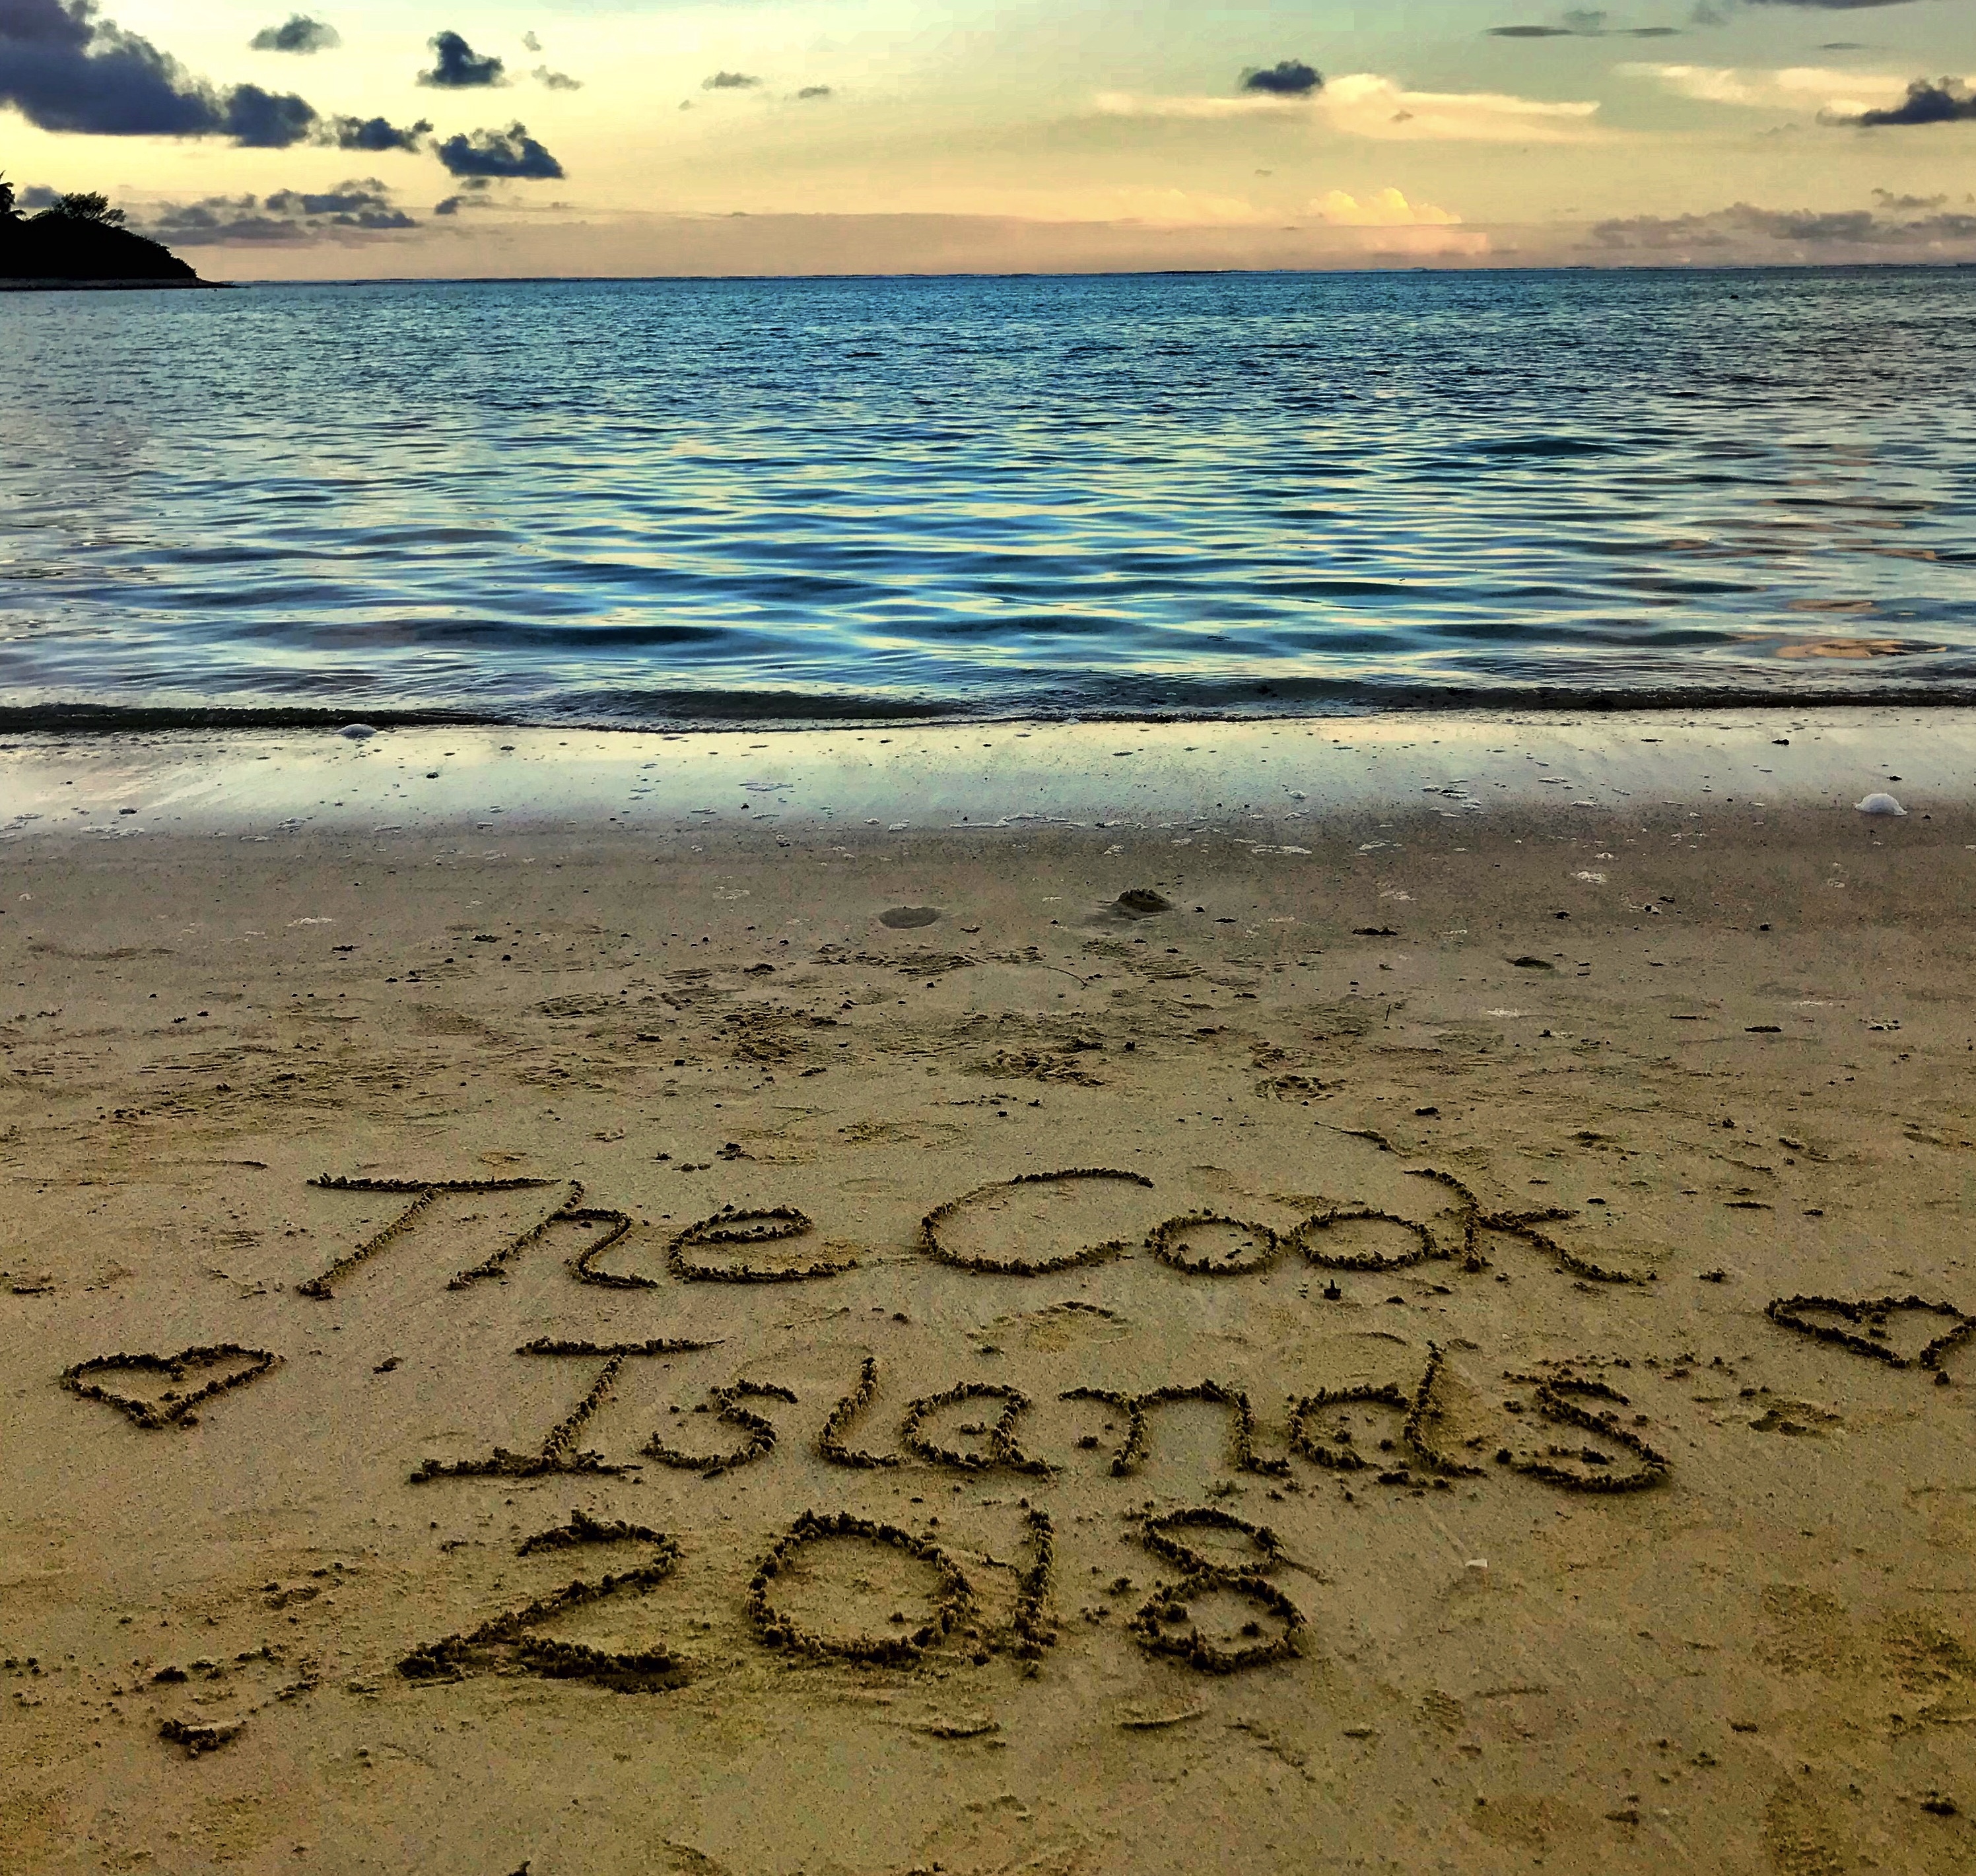 The Cook
Islands
2018